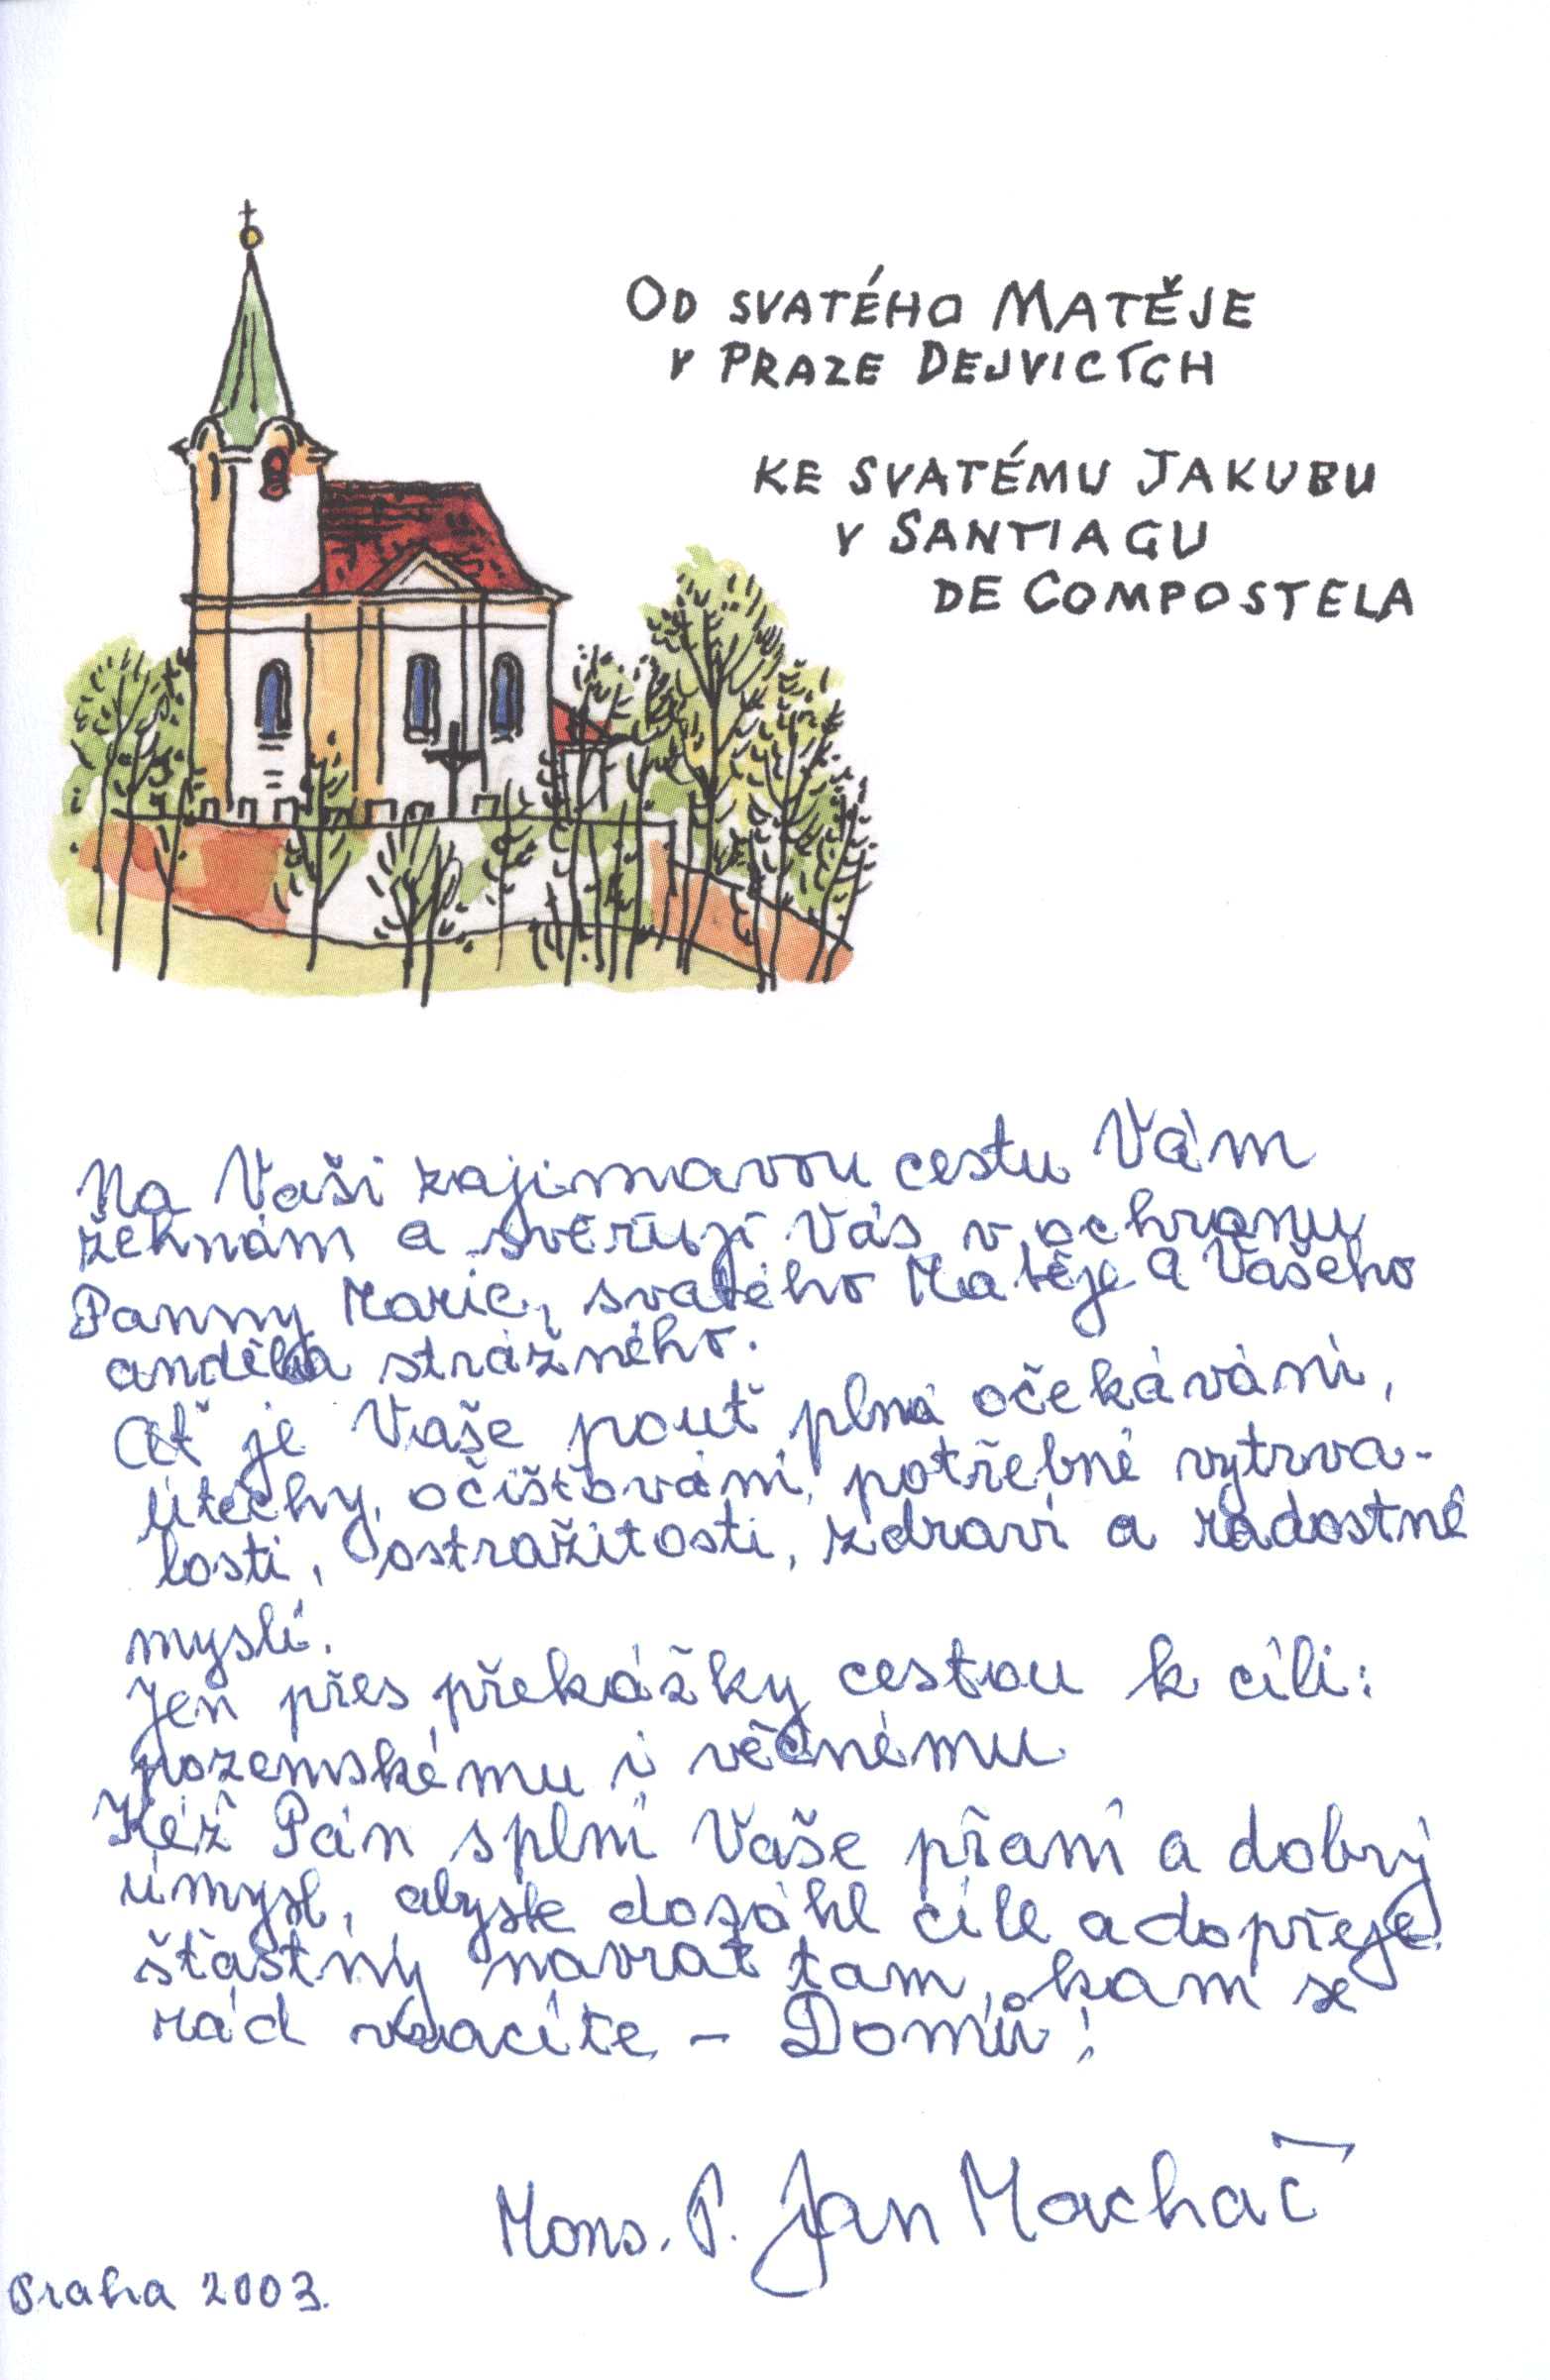 OD SVATÉHO MATĚJE
V PRAZE DEJVICÍCH
KE SVATÉMU JAKUBU
V SANTIAGU
DE COMPOSTELA
Na Vaši zajímavou cestu Vám
žehnám a svěřuji Vás v ochranu
Panny Marie, svatého Matěje a Vašeho
anděla strážného.
Ať je Vaše pouť plná očekávání,
útěchy, očišťování, potřebné vytrva-
losti, ostražitosti, zdraví a radostné
mysli.
Jen přes překážky cestou k cíli:
pozemskému i věčnému
Kéž Pán splní Vaše přání a dobrý
úmysl, abyste dosáhl cíle a dopřeje
šťastný návrat tam, kam se
rád vracíte – Domů!
Mons. P. Jan Machač
Praha 2003.